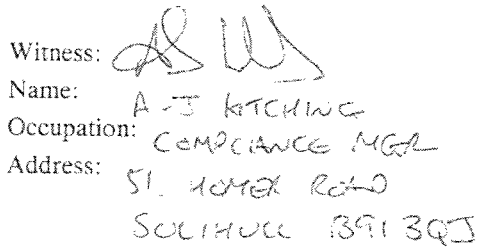 Witness:
Name: A-J KITCHING
Occupation: COMPLIANCE MGR
Address: 51. HOMER ROAD
SOLIHULL B91 3QJ